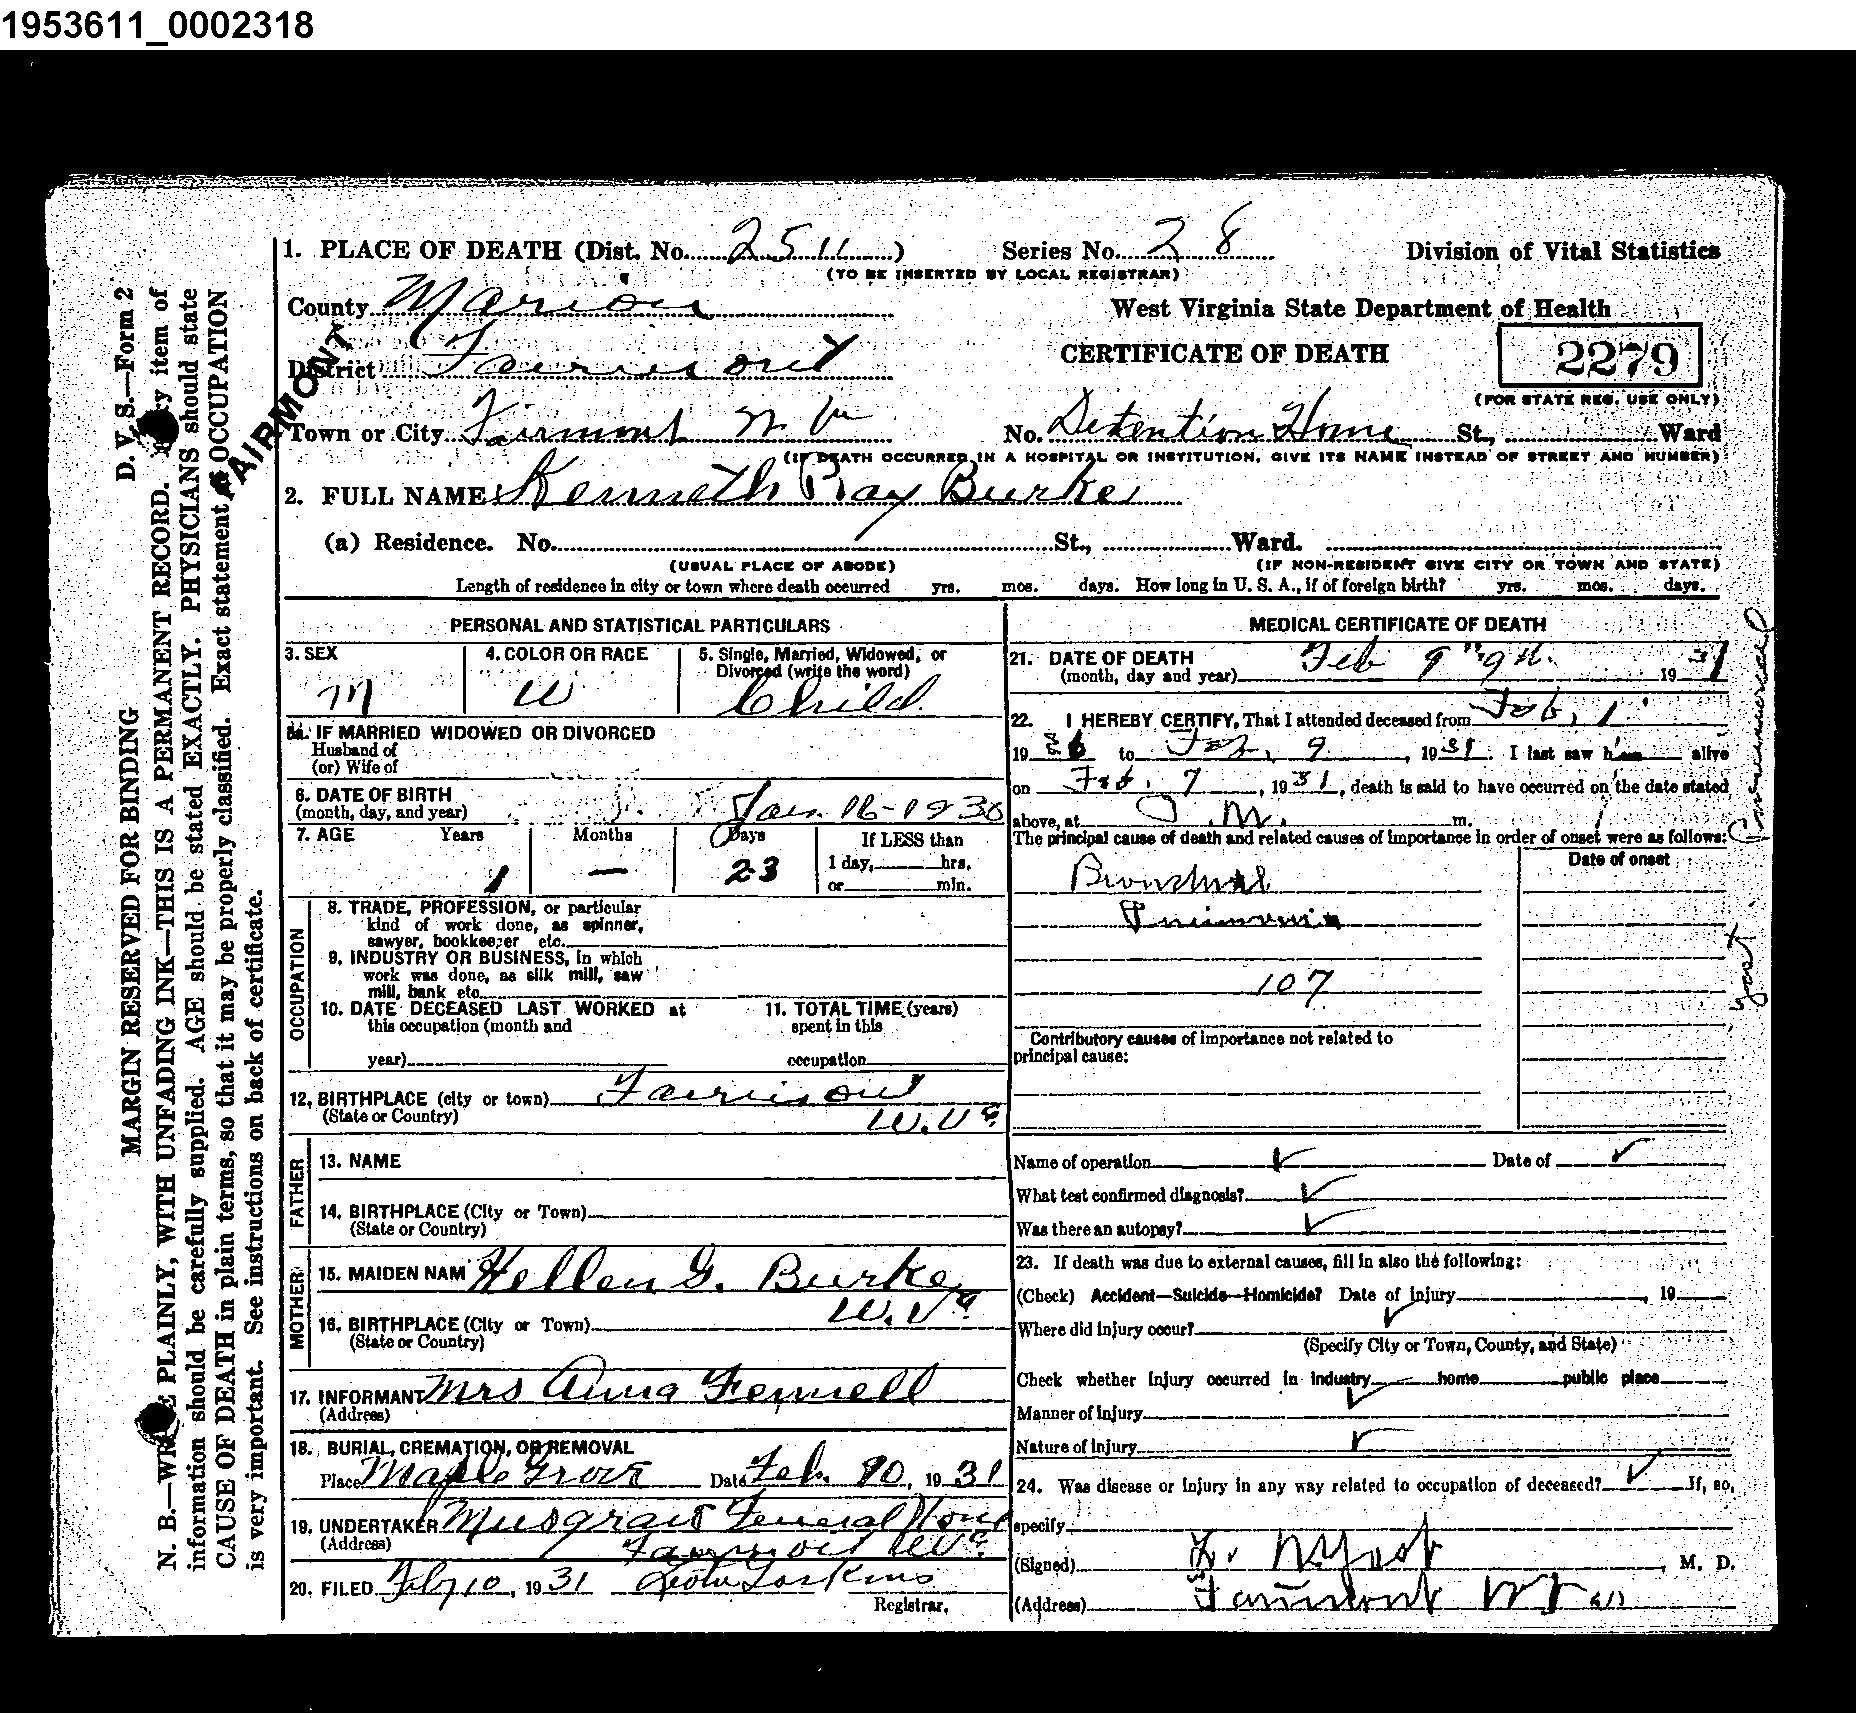 1953611_0002318
1. PLACE OF DEATH (Dist. No. 2511) Series No. 28 Division of Vital Statistics
(TO BE INSERTED BY LOCAL REGISTRAR)
County Marion West Virginia State Department of Health
District Fairmont CERTIFICATE OF DEATH 2279
(FOR STATE REG. USE ONLY)
FAIRMONT
Town or City Fairmont W Va No. Detention Home St., Ward
(IF DEATH OCCURRED IN A HOSPITAL OR INSTITUTION, GIVE ITS NAME INSTEAD OF STREET AND NUMBER)
2. FULL NAME Kenneth Ray Burke
(a) Residence. No. St., Ward.
(USUAL PLACE OF ABODE) (IF NON-RESIDENT GIVE CITY OR TOWN AND STATE)
Length of residence in city or town where death occurred yrs. mos. days. How long in U. S. A., if of foreign birth? yrs. mos. days.
PERSONAL AND STATISTICAL PARTICULARS
3. SEX 4. COLOR OR RACE 5. Single, Married, Widowed, or
Divorced (write the word)
M W Child
5a. IF MARRIED WIDOWED OR DIVORCED
Husband of
(or) Wife of
6. DATE OF BIRTH
(month, day, and year) Jan. 16-1930
7. AGE Years Months Days If LESS than
1 — 23 1 day, hrs.
or min.
OCCUPATION
8. TRADE, PROFESSION, or particular
kind of work done, as spinner,
sawyer, bookkeeper etc.
9. INDUSTRY OR BUSINESS, in which
work was done, as silk mill, saw
mill, bank etc.
10. DATE DECEASED LAST WORKED at 11. TOTAL TIME (years)
this occupation (month and spent in this
year) occupation
12. BIRTHPLACE (city or town) Fairmont
(State or Country) W. Va.
FATHER
13. NAME
14. BIRTHPLACE (City or Town)
(State or Country)
MOTHER
15. MAIDEN NAM Hellen G. Burke
16. BIRTHPLACE (City or Town) W. Va.
(State or Country)
17. INFORMANT Mrs Anna Fennell
(Address)
18. BURIAL, CREMATION, OR REMOVAL
Place Maple Grove Date Feb. 10, 1931
19. UNDERTAKER Musgrave Funeral Home
(Address) Fairmont W Va.
20. FILED Feby 10, 1931
Registrar.
MEDICAL CERTIFICATE OF DEATH
21. DATE OF DEATH Feb 9" 9th
(month, day and year) 1931
22. I HEREBY CERTIFY, That I attended deceased from Feb, 1
19 to Feb, 9, 1931. I last saw h alive
on Feb. 7, 1931, death is said to have occurred on the date stated
above, at M. m.
The principal cause of death and related causes of importance in order of onset were as follows:
Date of onset
Bronchial
Pneumonia
107
Contributory causes of importance not related to
principal cause:
Name of operation Date of
What test confirmed diagnosis?
Was there an autopsy?
23. If death was due to external causes, fill in also the following:
(Check) Accident—Suicide—Homicide? Date of injury , 19
Where did injury occur?
(Specify City or Town, County, and State)
Check whether injury occurred in industry home public place
Manner of injury
Nature of injury
24. Was disease or injury in any way related to occupation of deceased? If, so,
specify
(Signed) Yost, M. D.
(Address) Fairmont W Va
D. V. S.—Form 2
MARGIN RESERVED FOR BINDING
N. B.—WRITE PLAINLY, WITH UNFADING INK—THIS IS A PERMANENT RECORD. Every item of
information should be carefully supplied. AGE should be stated EXACTLY. PHYSICIANS should state
CAUSE OF DEATH in plain terms, so that it may be properly classified. Exact statement of OCCUPATION
is very important. See instructions on back of certificate.
Yost